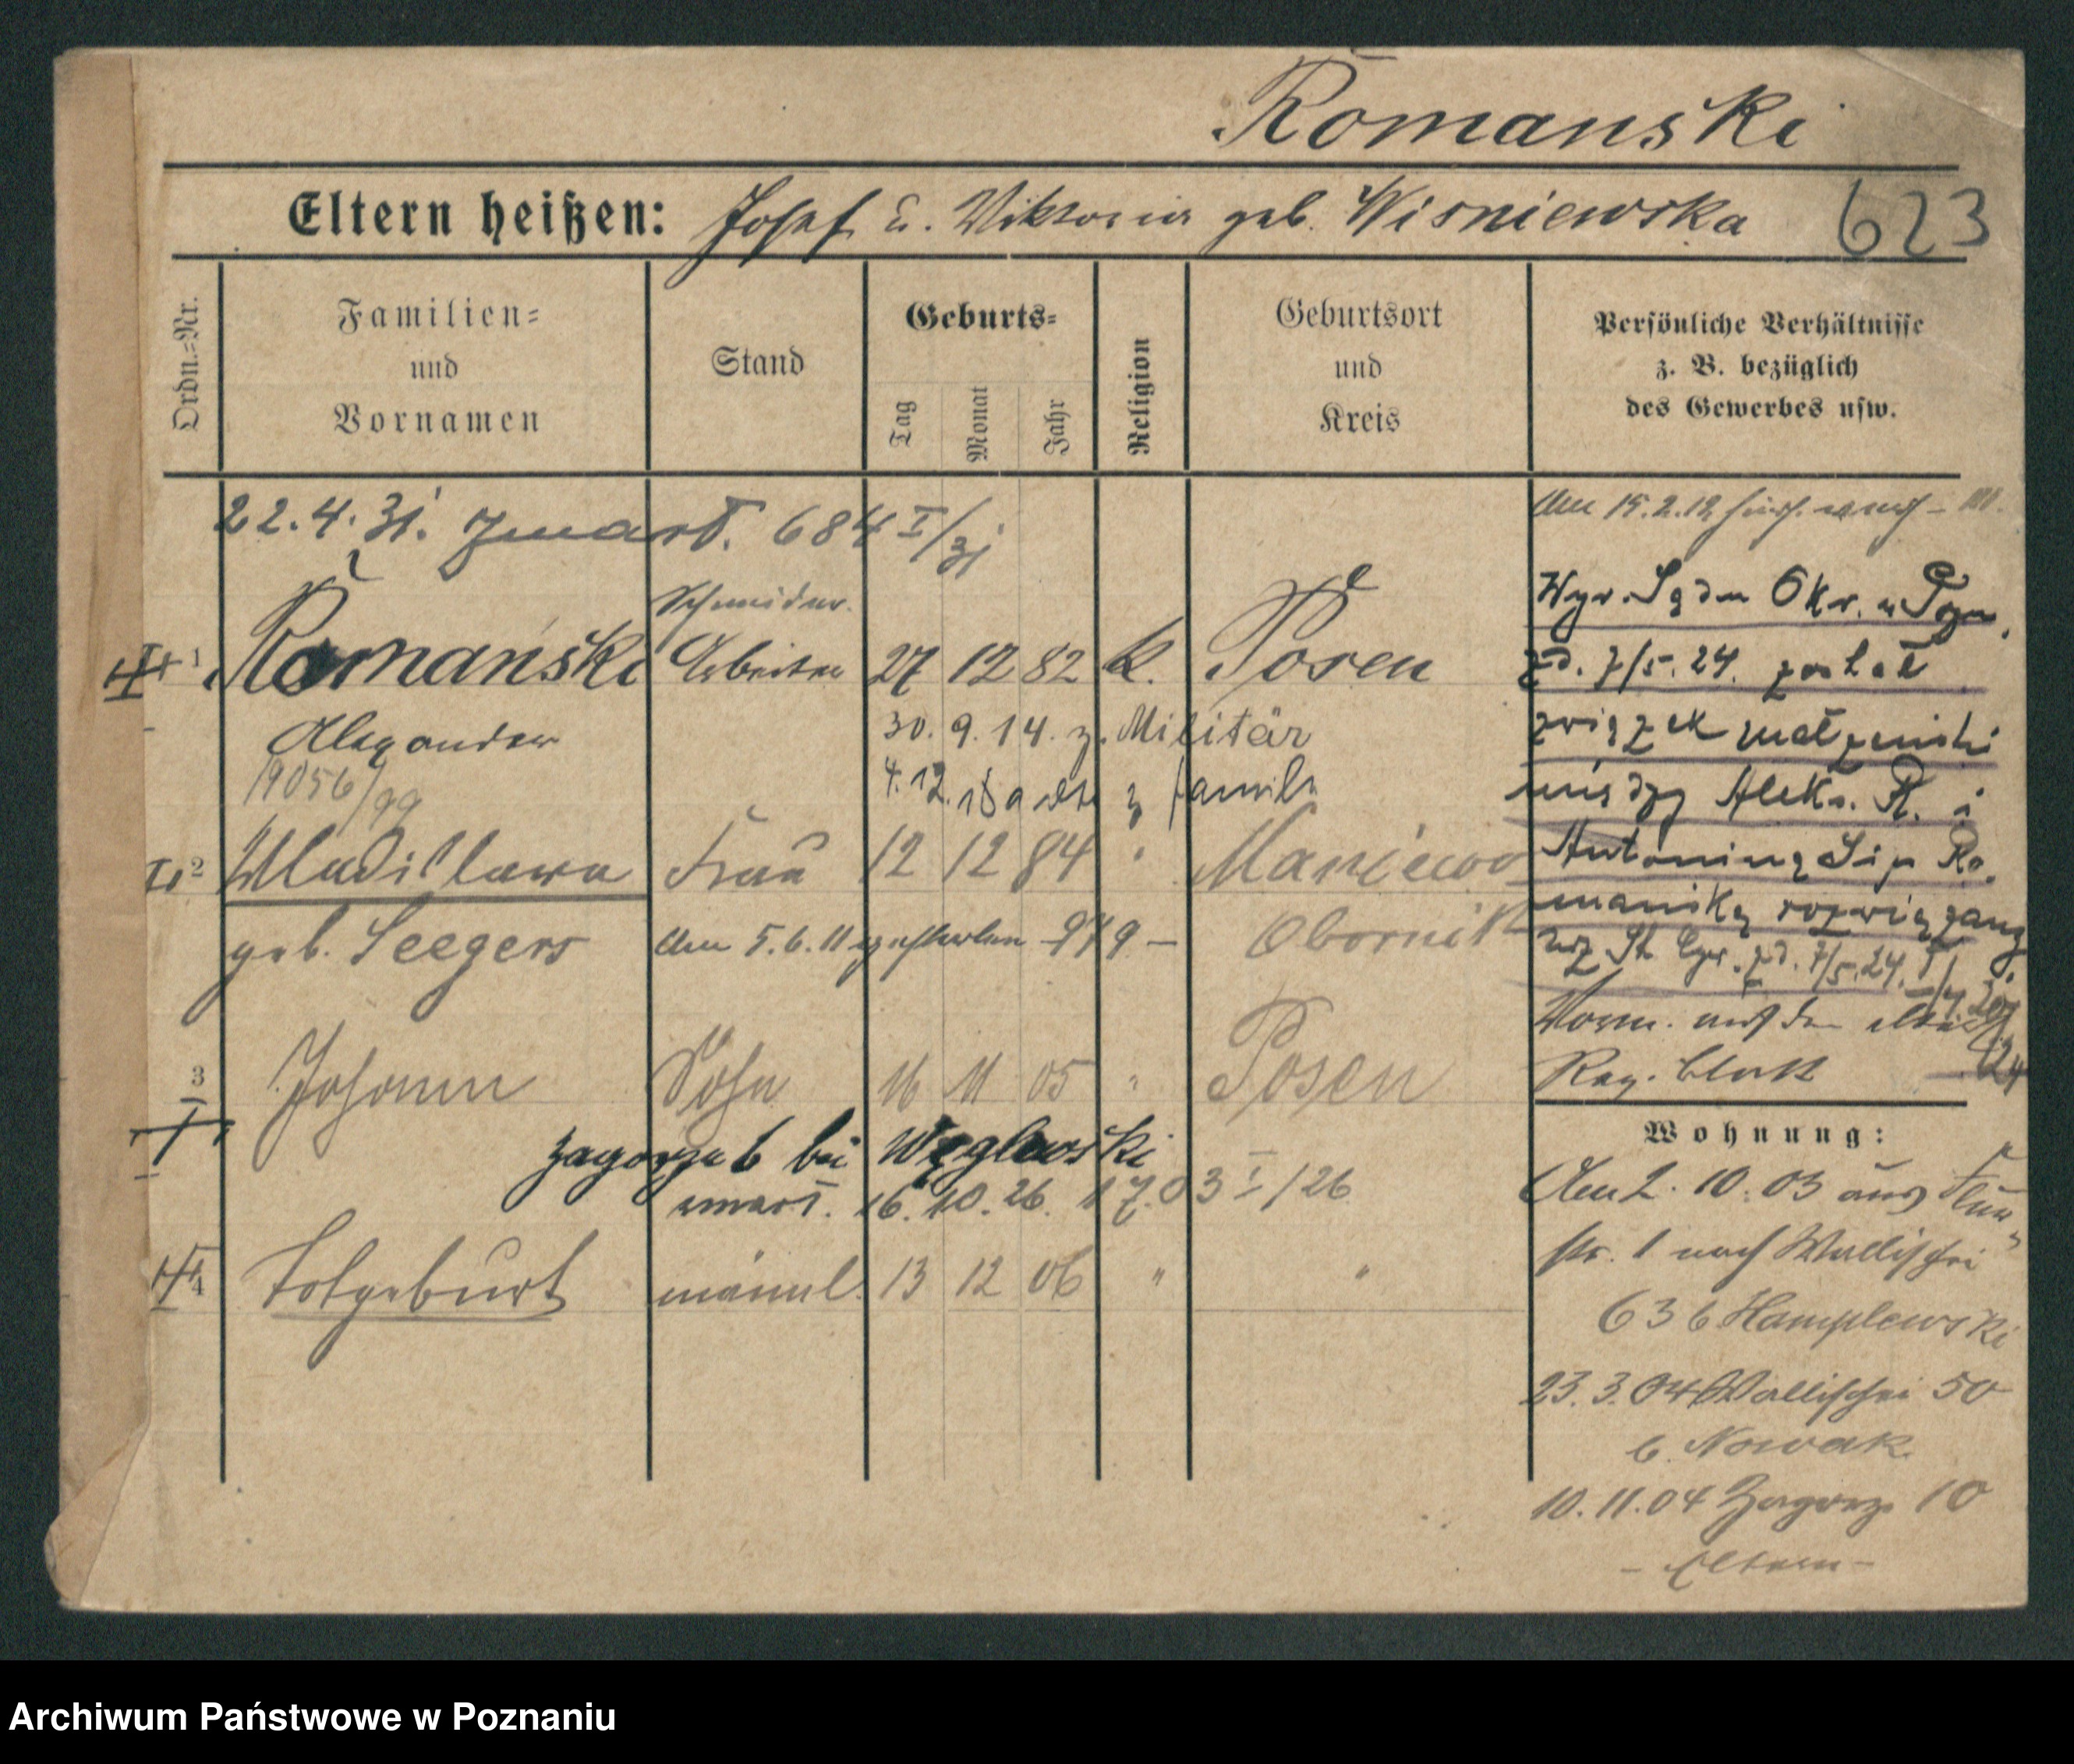 Romanski
Eltern heißen: Josef u. Viktoria geb. Wisniewska 623
Ordn.=Nr.
Familien= und Vornamen
Stand
Geburts=
Tag Monat Jahr
Religion
Geburtsort und Kreis
Persönliche Verhältnisse
z. B. bezüglich
des Gewerbes usw.
22.4.31. zmarł. 684 I/31
Schneider.
1 Romański Arbeiter 27 12 82 k. Posen
Alexander 30. 9. 14. z. Militär
19056/99 4. 12. 18 z Famil
2 Wladislawa Frau 12 12 84 " Maniewo
geb. Seegers den 5. 6. 11 gestorben - 979 - Obornik
3 Johann Sohn 16 11 05 " Posen
Zagorze 6 bei Węglewski
zmarł. 16. 10. 26. 1703 I/26
4 Totgeburt männl. 13 12 06 " "
Den 15.2.12
Wyr. Sądu Okr. w Pozn.
zd. 7/5. 24. został
związek małżeński
między Aleks. R. i
Antoniną Ro-
mańską rozwiązany
zd. 7/5.24.
Vorm. auf dem
Reg. Blatt
Wohnung:
Den 2. 10. 03 aus
str. 1 nach Wallischei
63 b Hamplewski
23. 3. 04 Wallischei 50
b. Nowak
10. 11. 04 Zagorze 10
- Eltern -
Archiwum Państwowe w Poznaniu